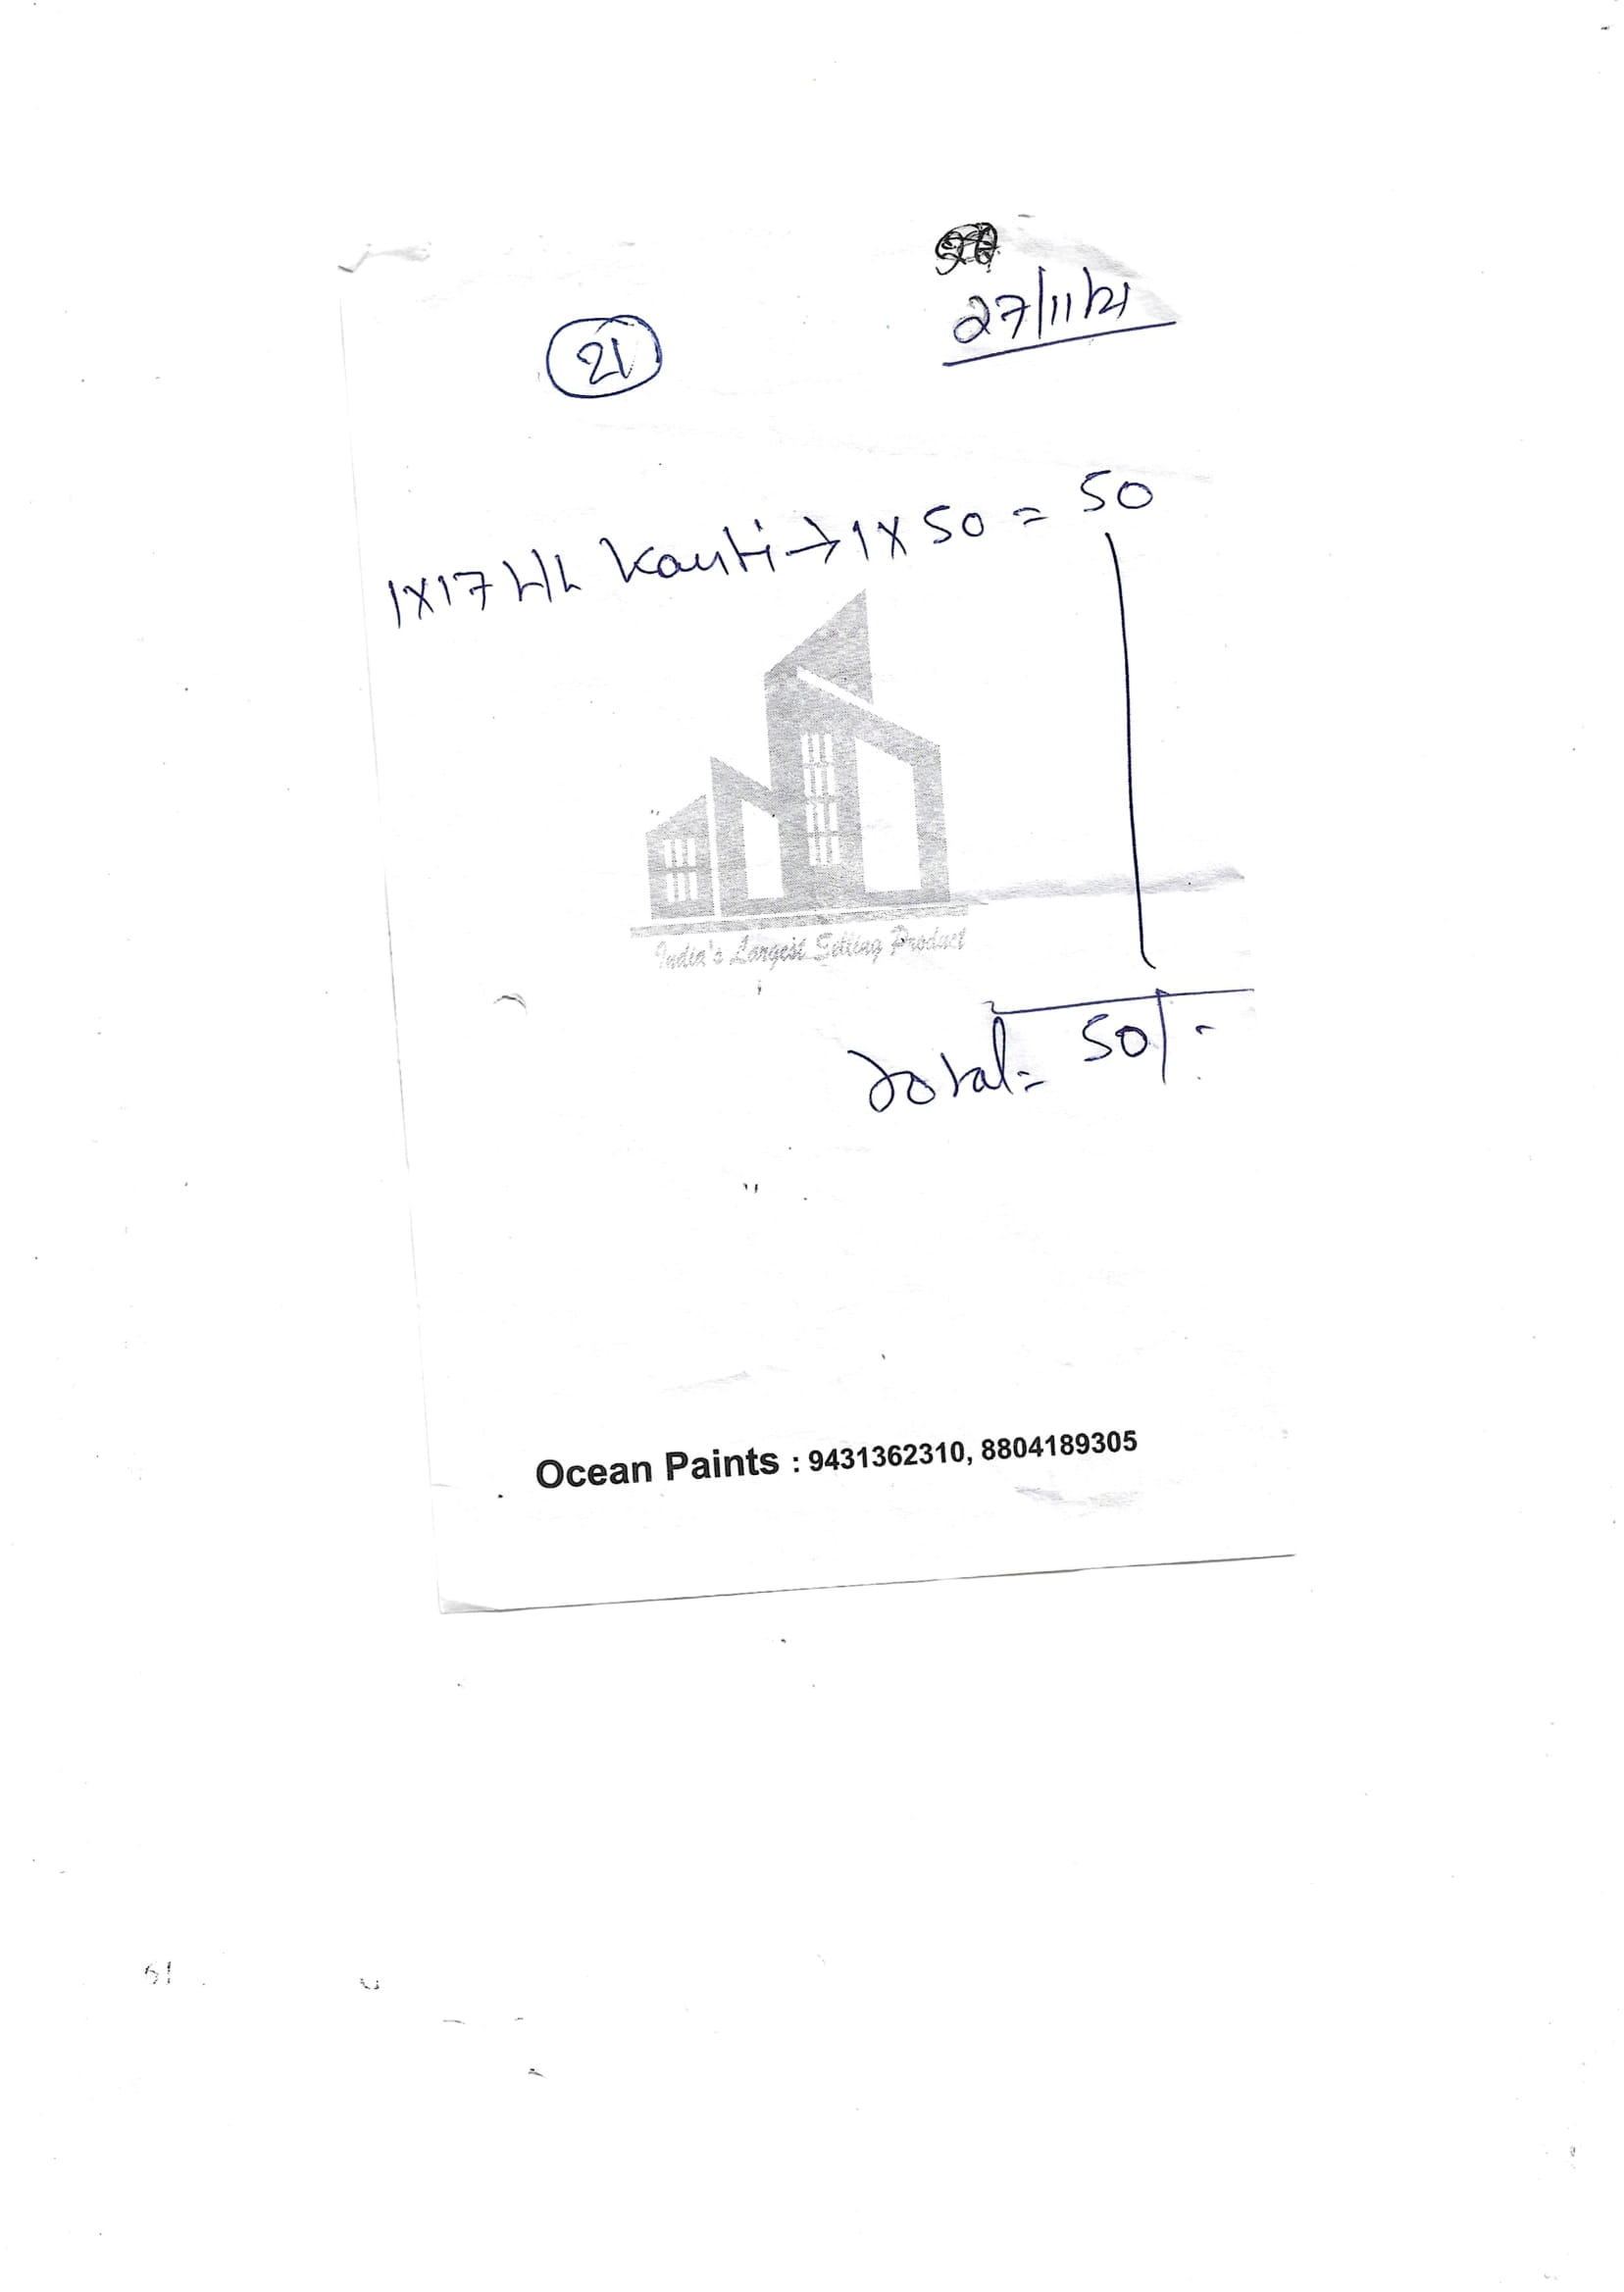 27/11/21
21
1X17 HL Kauti → 1 X 50 = 50
India's Largest Selling Product
Total = 50/=
Ocean Paints : 9431362310, 8804189305